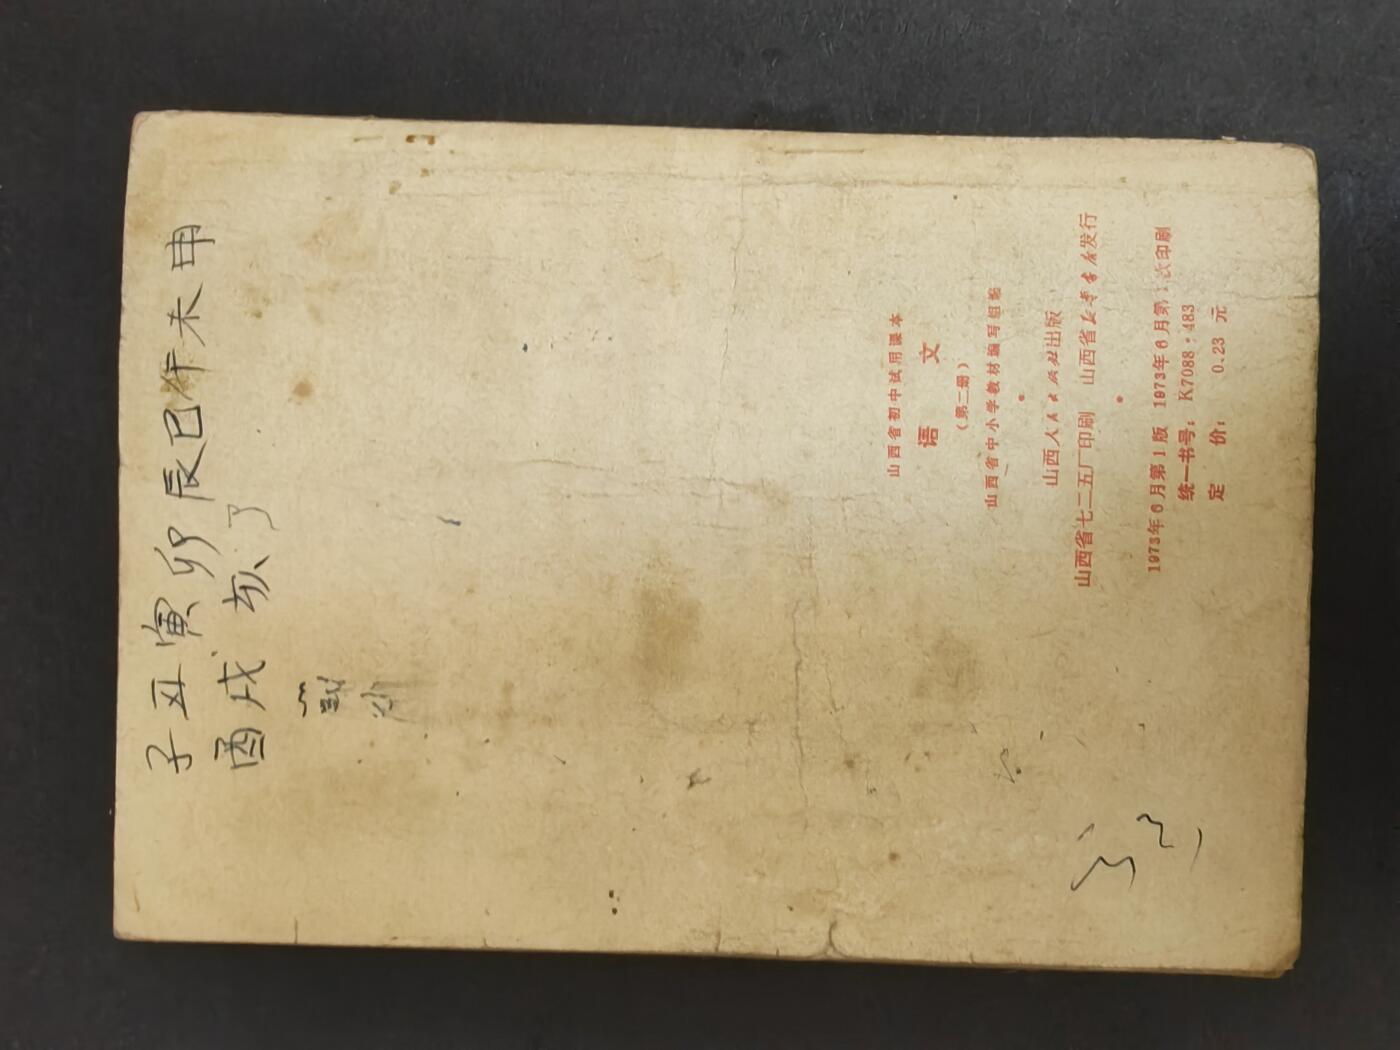 子丑寅卯辰巳午未申
酉戌亥了
山西省初中试用课本
语文
(第二册)
山西省中小学教材编写组编
山西人民出版社出版
山西省七二五厂印刷 山西省新华书店发行
1973年6月第1版 1973年6月第1次印刷
统一书号：K7088·483
定价：0.23元